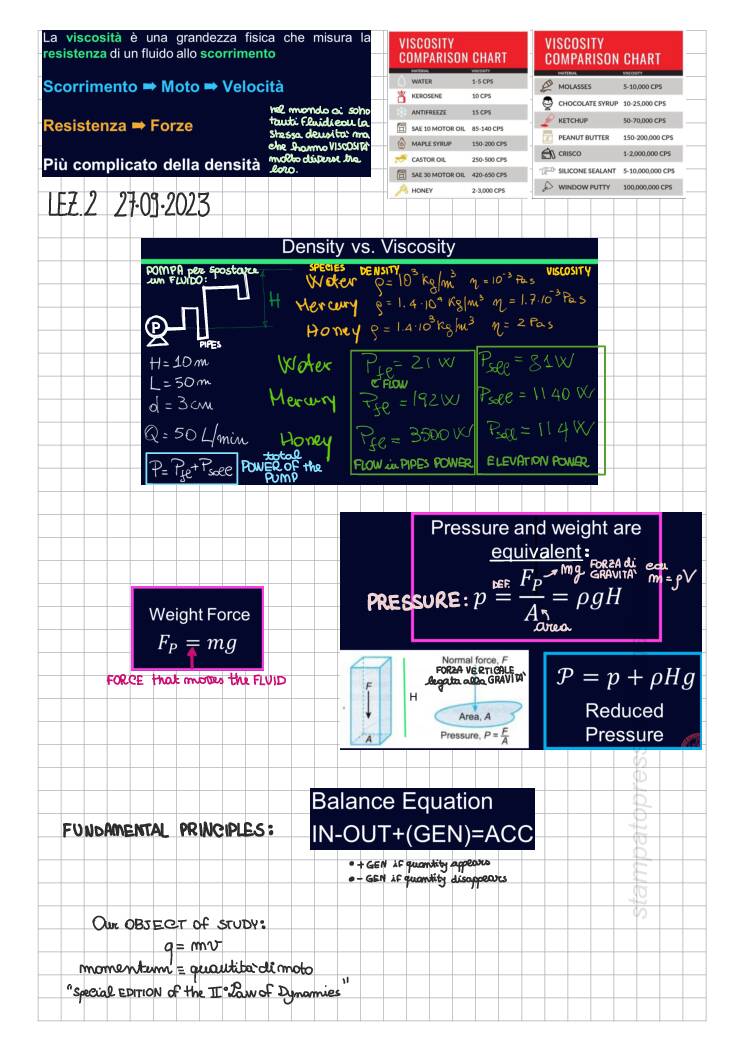 La viscosità è una grandezza fisica che misura la
resistenza di un fluido allo scorrimento
Scorrimento ➡ Moto ➡ Velocità
Resistenza ➡ Forze
Più complicato della densità
nel mondo ci sono
tanti fluidi con la
stessa densità ma
che hanno VISCOSITÀ
molto diverse tra
loro.
VISCOSITY
COMPARISON CHART
MATERIAL VISCOSITY
WATER 1-5 CPS
KEROSENE 10 CPS
ANTIFREEZE 15 CPS
SAE 10 MOTOR OIL 85-140 CPS
MAPLE SYRUP 150-200 CPS
CASTOR OIL 250-500 CPS
SAE 30 MOTOR OIL 420-650 CPS
HONEY 2-3,000 CPS
VISCOSITY
COMPARISON CHART
MATERIAL VISCOSITY
MOLASSES 5-10,000 CPS
CHOCOLATE SYRUP 10-25,000 CPS
KETCHUP 50-70,000 CPS
PEANUT BUTTER 150-200,000 CPS
CRISCO 1-2,000,000 CPS
SILICONE SEALANT 5-10,000,000 CPS
WINDOW PUTTY 100,000,000 CPS
LEZ.2 27.09.2023
Density vs. Viscosity
POMPA per spostare
un FLUIDO:
P
PIPES
H
SPECIES DENSITY VISCOSITY
Water ρ = 10³ Kg/m³ η = 10⁻³ Pas
Mercury ρ = 1.4·10⁴ Kg/m³ η = 1.7·10⁻³ Pas
Honey ρ = 1.4·10³ Kg/m³ η = 2 Pas
H = 10 m
L = 50 m
d = 3 cm
Q = 50 L/min
P = Pfe + Psoll
total
POWER OF the
PUMP
Water Pfe = 21 W Psoll = 81 W
FLOW
Mercury Pfe = 192 W Psoll = 1140 W
Honey Pfe = 3500 W Psoll = 114 W
FLOW in PIPES POWER ELEVATION POWER
Weight Force
F_P = mg
FORCE that moves the FLUID
Pressure and weight are
equivalent:
PRESSURE: p = F_P/A = ρgH
DEF.
mg FORZA di GRAVITÀ con m = ρV
area
F
A
H
Normal force, F
FORZA VERTICALE
legata alla GRAVITÀ
Area, A
Pressure, P = F/A
𝒫 = p + ρHg
Reduced
Pressure
FUNDAMENTAL PRINCIPLES:
Balance Equation
IN-OUT+(GEN)=ACC
• + GEN if quantity appears
• - GEN if quantity disappears
Our OBJECT OF STUDY:
q = mv
momentum = quantità di moto
"Special EDITION of the II° Law of Dynamics"
stampatopress